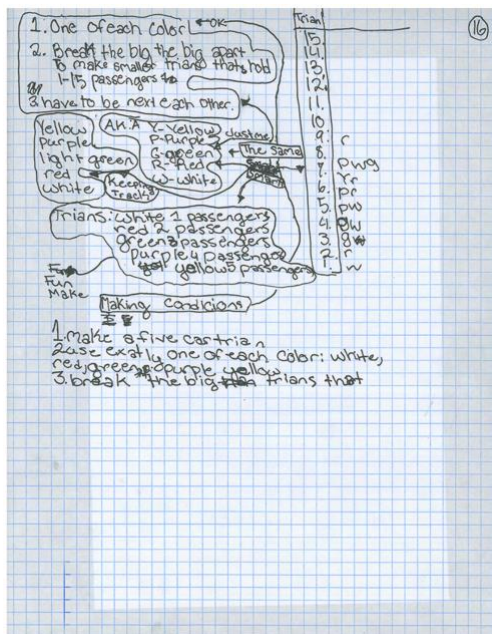 16
1. One of each color
OK
2. Break the big the big apart
to make smaller trians that hold
1-15 passengers
3. have to be next each other.
Yellow
purple
light green
red
white
Keeping
Track
A.K.A Y-Yellow
P-Purple
G-green
R-Red
W-white
Just me
The Same
Trian
15.
14.
13.
12.
11.
10
9. r
8.
7. pwg
6. Yr
5. pr
4. pw
3. gw
2. r
1. w
Trians: white 1 passengers
red 2 passengers
green 3 passengers
purple 4 passenger
yellow 5 passengers
Fun
Make
Making Conditions
1. make a five car trian
2 use exatly one of each color: white,
red, green, purple yellow
3. break the big trians that